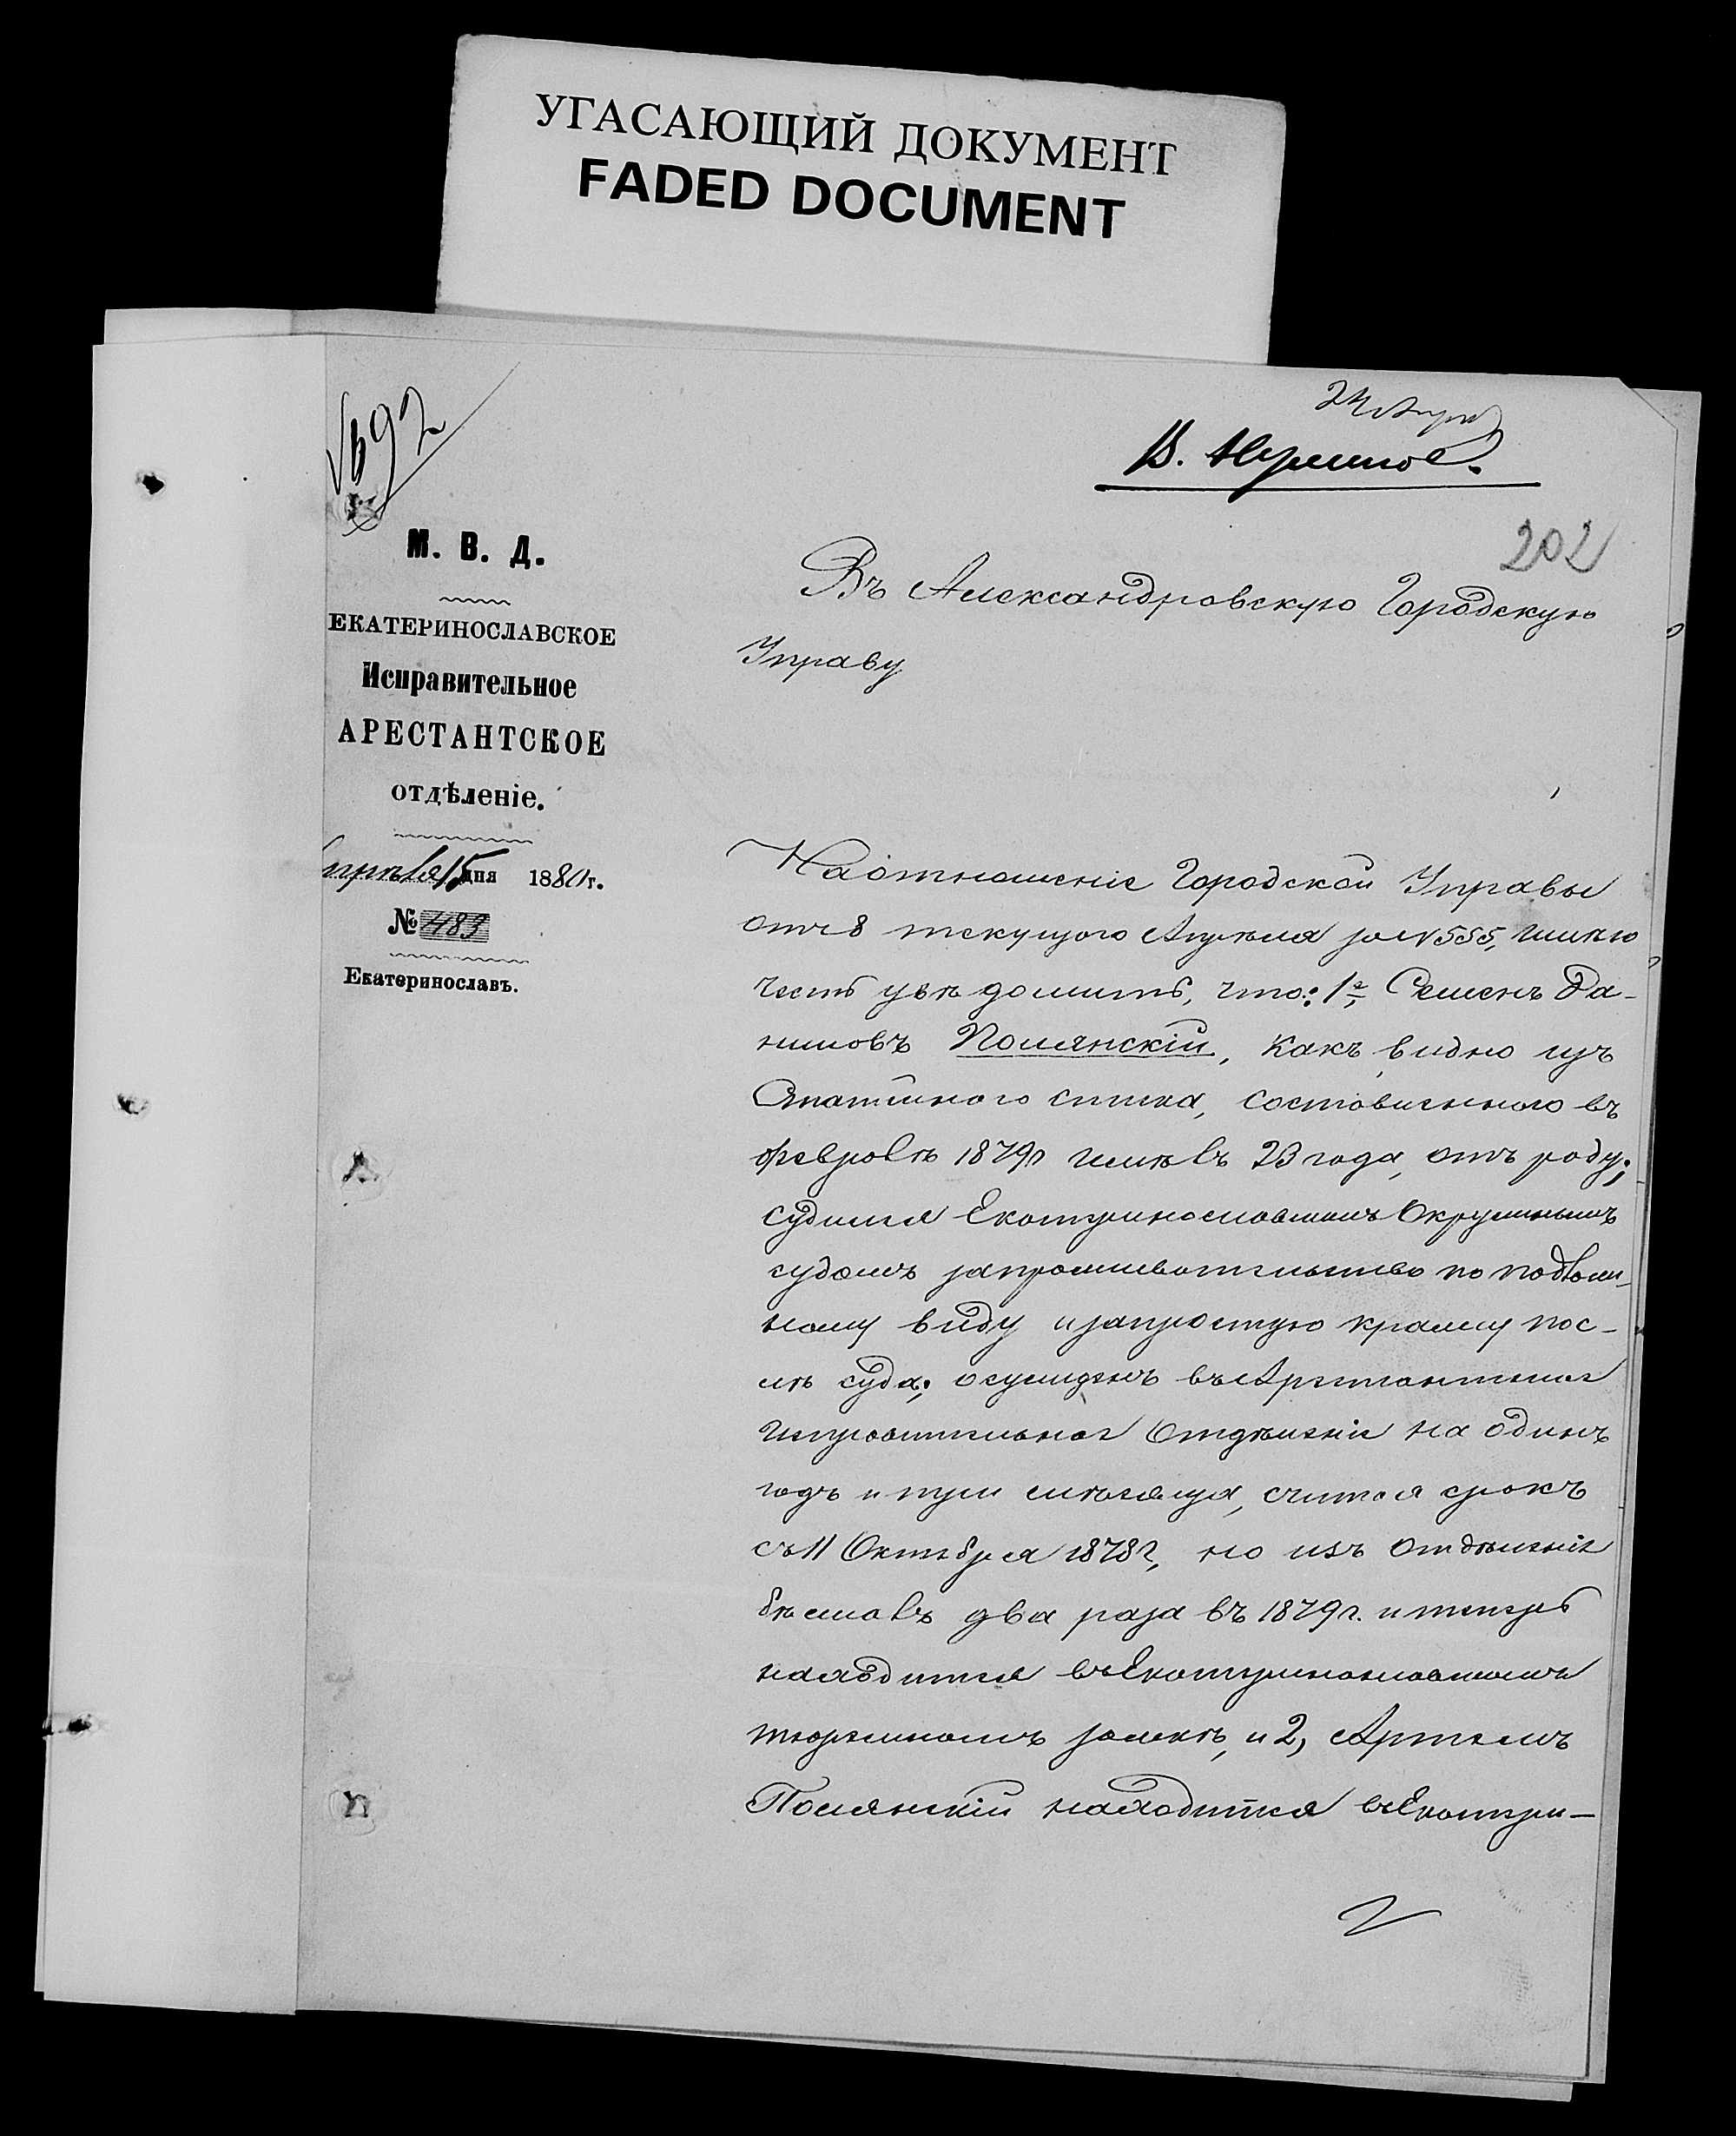 УГАСАЮЩИЙ ДОКУМЕНТ
FADED DOCUMENT
202
М. В. Д.
ЕКАТЕРИНОСЛАВСКОЕ
Исправительное
АРЕСТАНТСКОЕ
отдѣленіе.
Апрѣля 15 дня 1880 г.
№ 483
Екатеринославъ.
Въ Александровскую Городскую
Управу
На отношеніе Городской Управы
отъ 8 текущого Апрѣля за № 555, имѣю
честь увѣдомить, что: 1е, Семенъ Да-
ниловъ Полянскій, какъ видно изъ
Статейного списка, составленного въ
Февралѣ 1879 г имѣлъ 23 года, отъ роду;
судился Екатеринославскимъ Окружнымъ
судомъ за прожывательство по подлож-
ному виду и за простую кражу пос-
лѣ суда; осужденъ въ Арестантское
Исправительное Отдѣленіе на одинъ
годъ и три мѣсяца, считая срокъ
съ 11 Октября 1878 г, но изъ Отдѣленія
бѣжалъ два раза въ 1879 г. и теперь
находится въ Екатеринославскомъ
тюремномъ замкѣ, и 2, Артемъ
Полянскій находится въ Екатери-